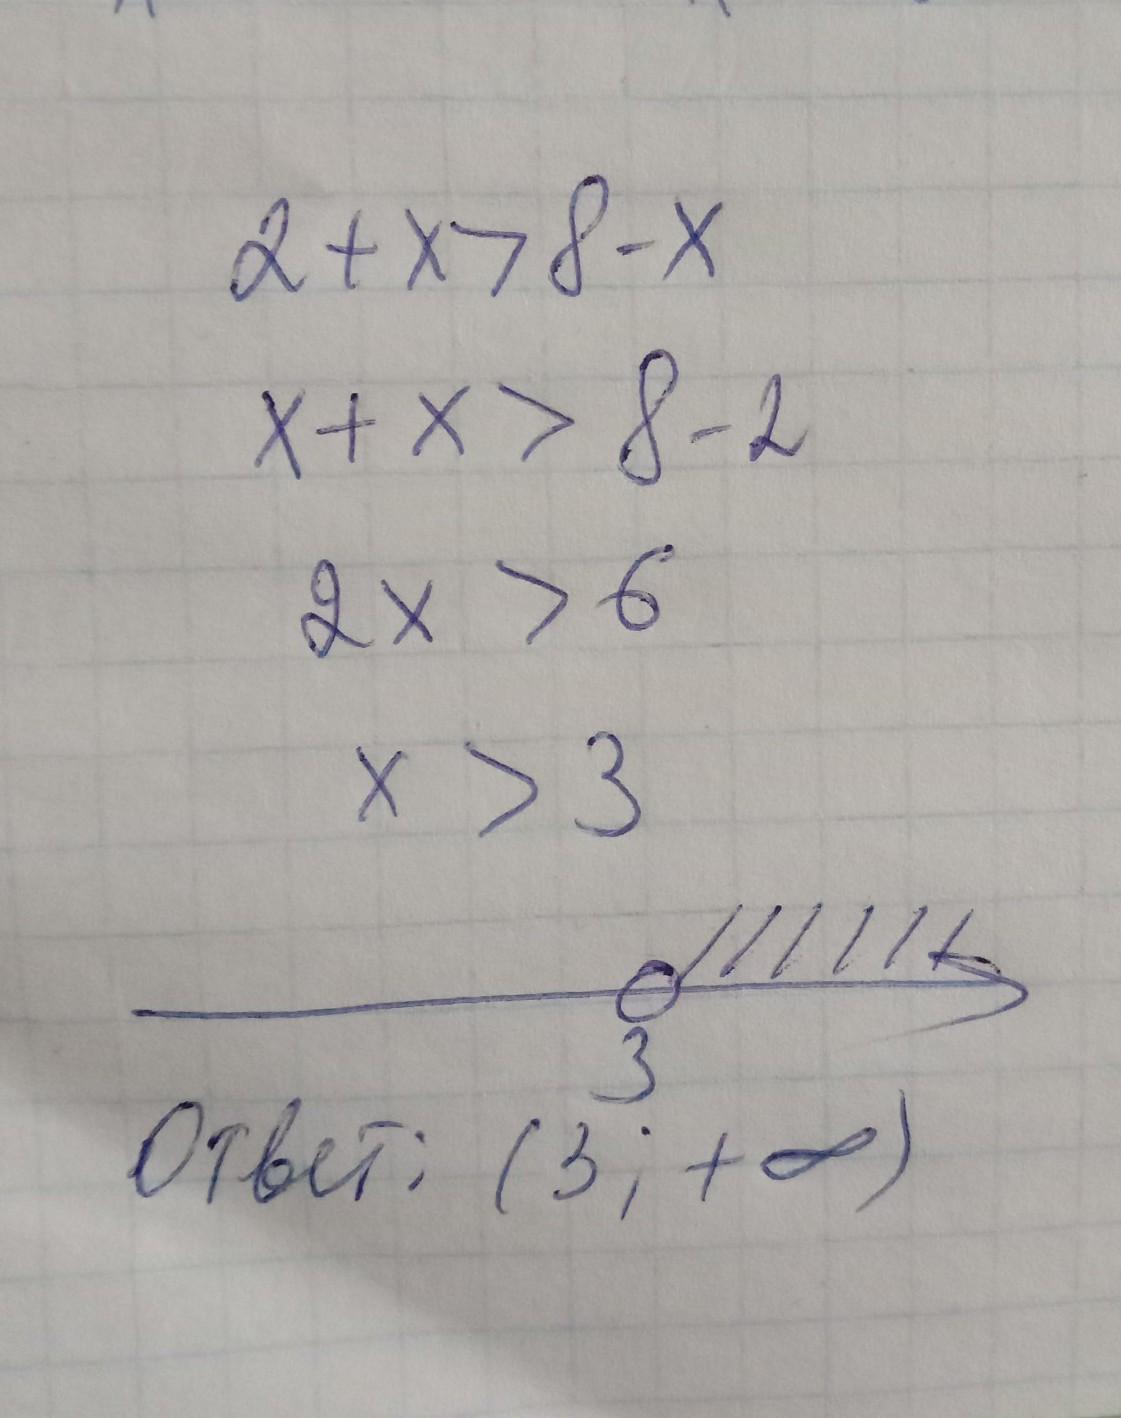 2 + x > 8 - x
x + x > 8 - 2
2x > 6
x > 3
3
Ответ: (3; +∞)